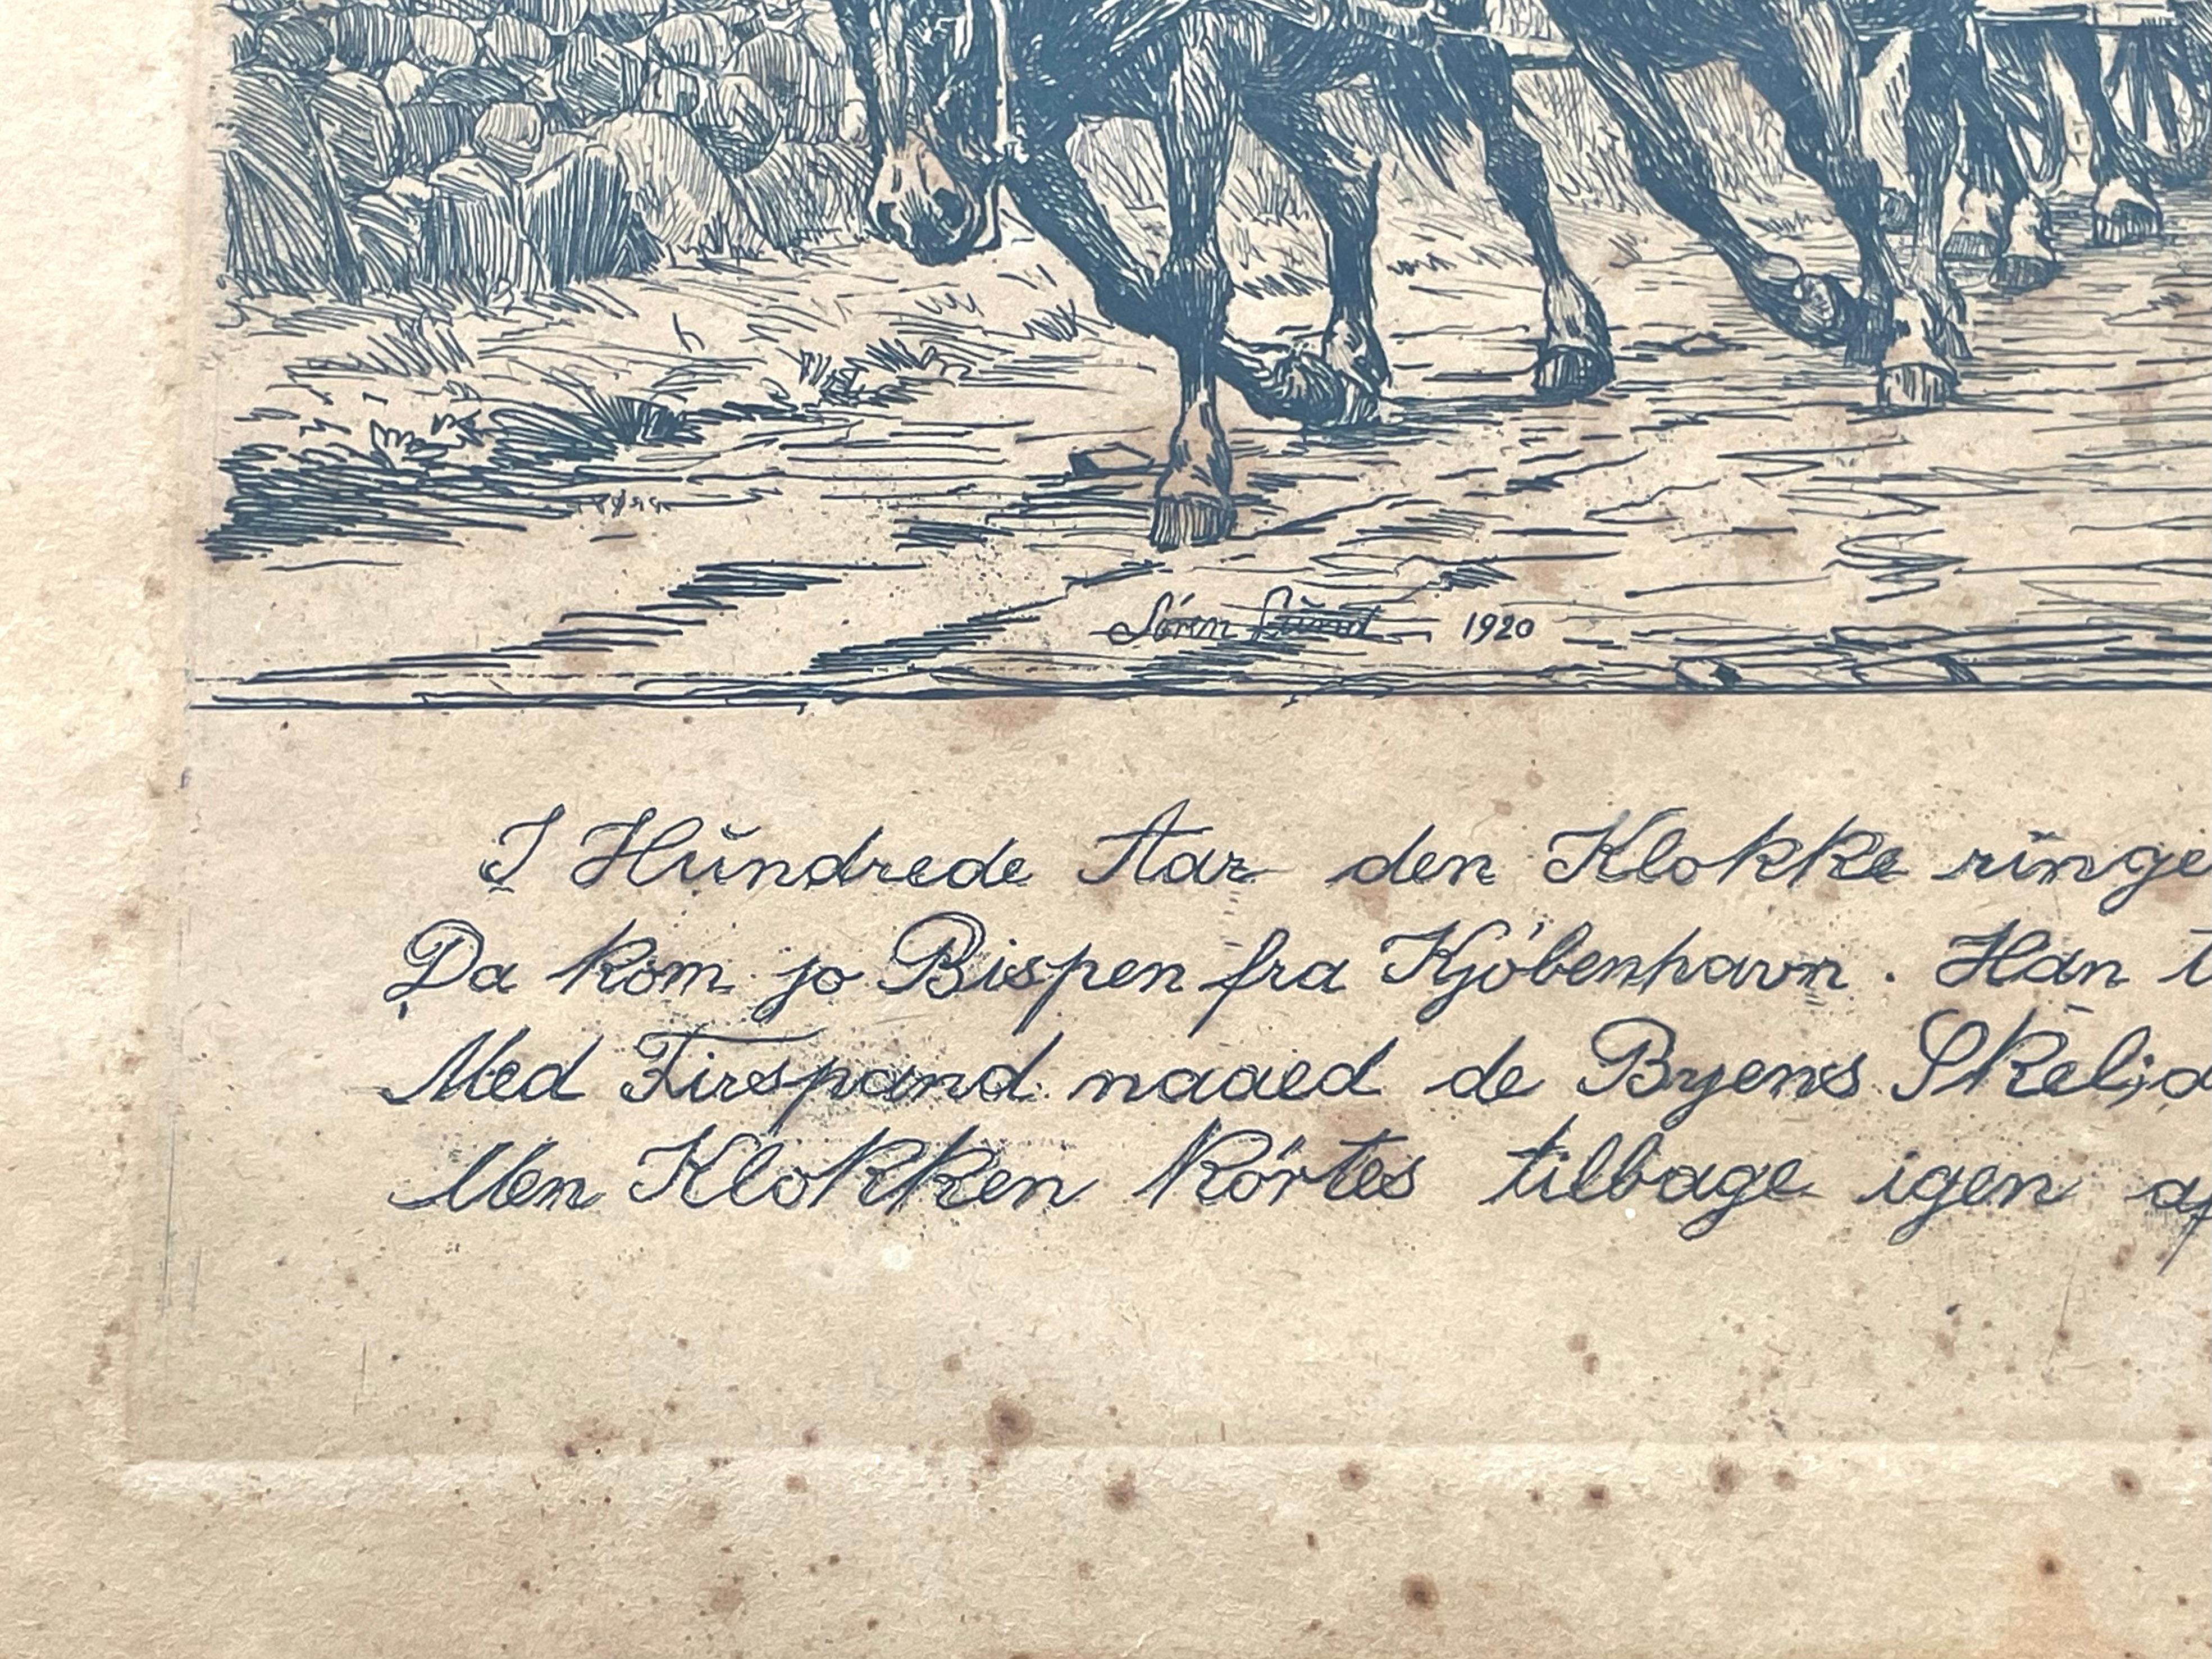 Sören Lund 1920
I Hŭndrede Aar den Klokke ringe
Da kom jo Bispen fra Kjöbenhavn. Han t
Med Firspand naaed de Byens Skel;
Men Klokken körtes tilbage igen af